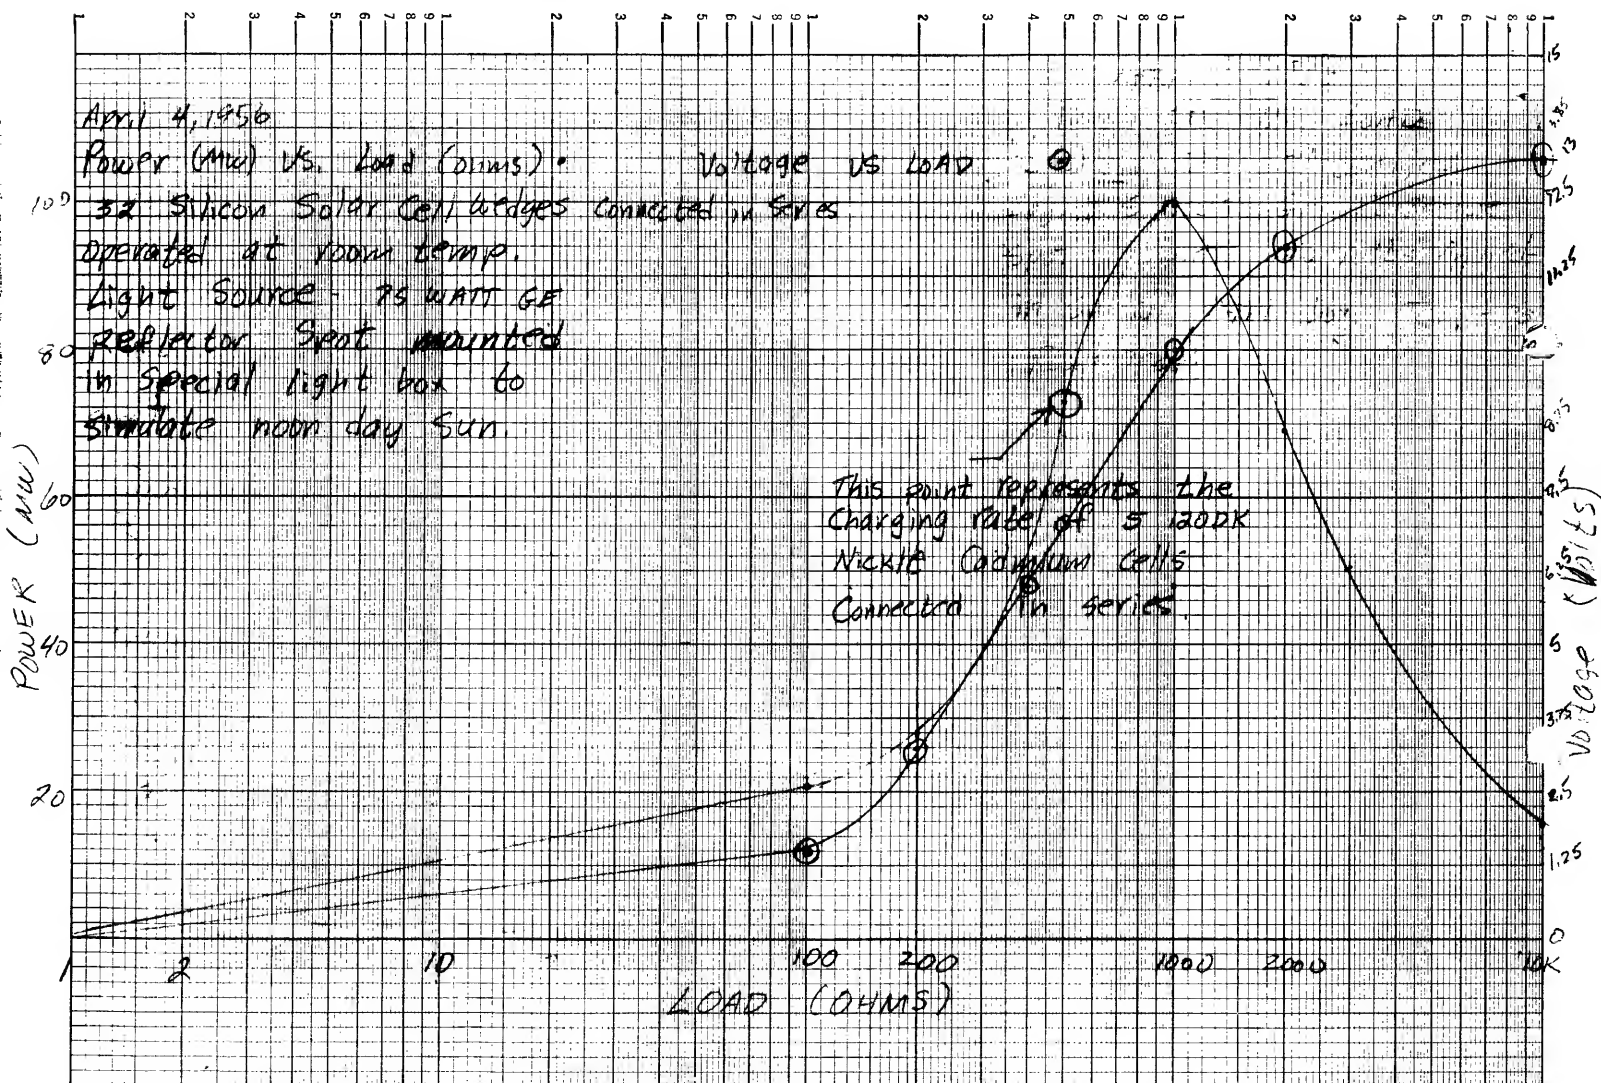 1 2 3 4 5 6 7 8 9 1 2 3 4 5 6 7 8 9 1 2 3 4 5 6 7 8 9 1 2 3 4 5 6 7 8 9 1
April 4, 1956
Power (MW) VS. Load (Ohms) • Voltage VS LOAD ⊙
32 Silicon Solar Cell Wedges connected in Series
operated at room temp.
Light Source - 75 WATT GE
Reflector Spot mounted
in special light box to
simulate noon day Sun.
This point represents the
Charging rate of 5 120DK
Nickle Cadmium Cells
Connected in series
POWER (MW)
100
80
60
40
20
15
13
12.5
11.25
8.75
7.5
6.25
5
3.75
2.5
1.25
0
Voltage (Volts)
1 2 10 100 200 1000 2000 10K
LOAD (OHMS)